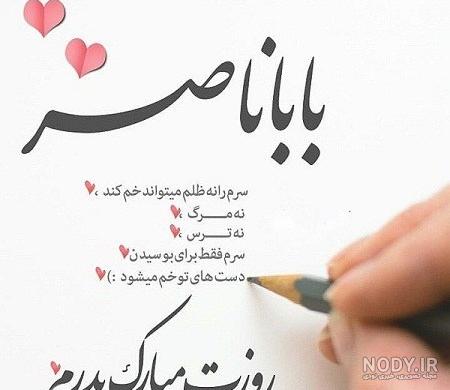 بابا ناصر
سرم را نه ظلم میتواند خم کند ،
نه مـــرگ ،
نه تـــرس ،
سرم فقط برای بوسیدن
دست های تو خم میشود :)
روزت مبارک پدرم
NODY.IR
مجله تصویری خبری نودی